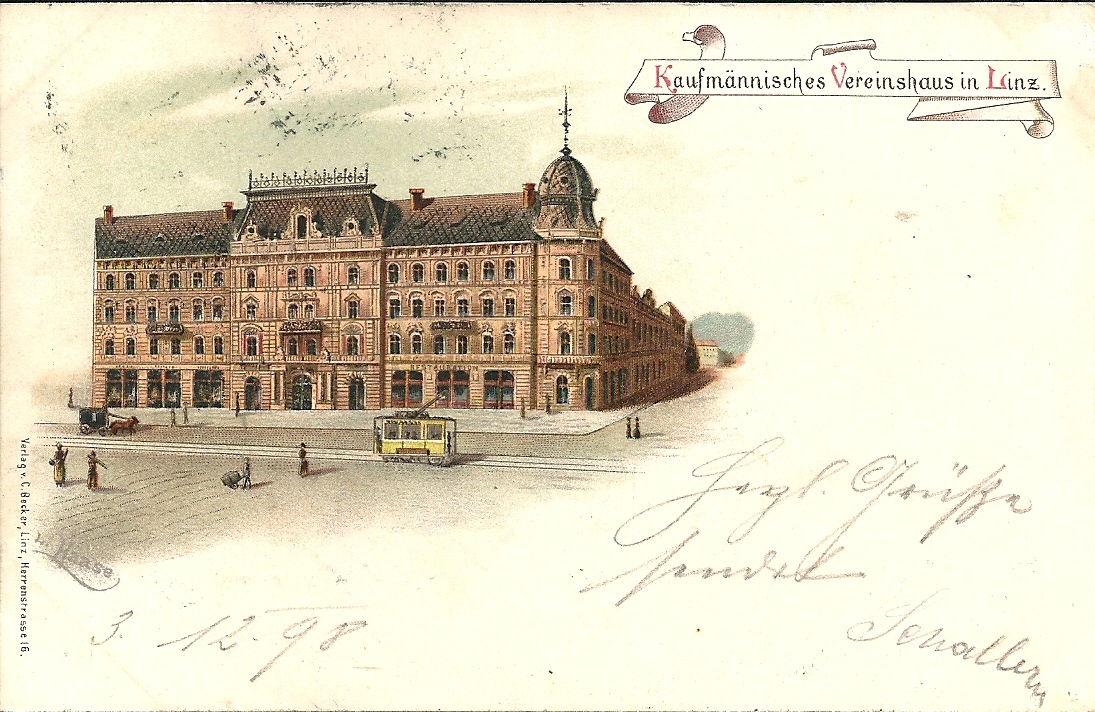 Kaufmännisches Vereinshaus in Linz.
Herzl. Grüße
sendet
3. 12. 98
Verlag v. C. Becker, Linz, Herrenstrasse 16.